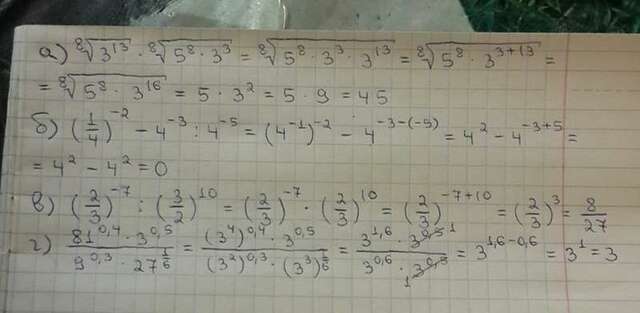 а) ⁸√3¹³ · ⁸√5⁸ · 3³ = ⁸√5⁸ · 3³ · 3¹³ = ⁸√5⁸ · 3³⁺¹³ =
= ⁸√5⁸ · 3¹⁶ = 5 · 3² = 5 · 9 = 45
б) (1/4)⁻² − 4⁻³ : 4⁻⁵ = (4⁻¹)⁻² − 4^(−3−(−5)) = 4² − 4⁻³⁺⁵ =
= 4² − 4² = 0
в) (2/3)⁻⁷ : (3/2)¹⁰ = (2/3)⁻⁷ · (2/3)¹⁰ = (2/3)⁻⁷⁺¹⁰ = (2/3)³ = 8/27
г) (81^0,4 · 3^0,5)/(9^0,3 · 27^(1/6)) = ((3⁴)^0,4 · 3^0,5)/((3²)^0,3 · (3³)^(1/6)) = (3^1,6 · 3^0,5 1)/(3^0,6 · 1 3^0,5) = 3^(1,6−0,6) = 3¹ = 3